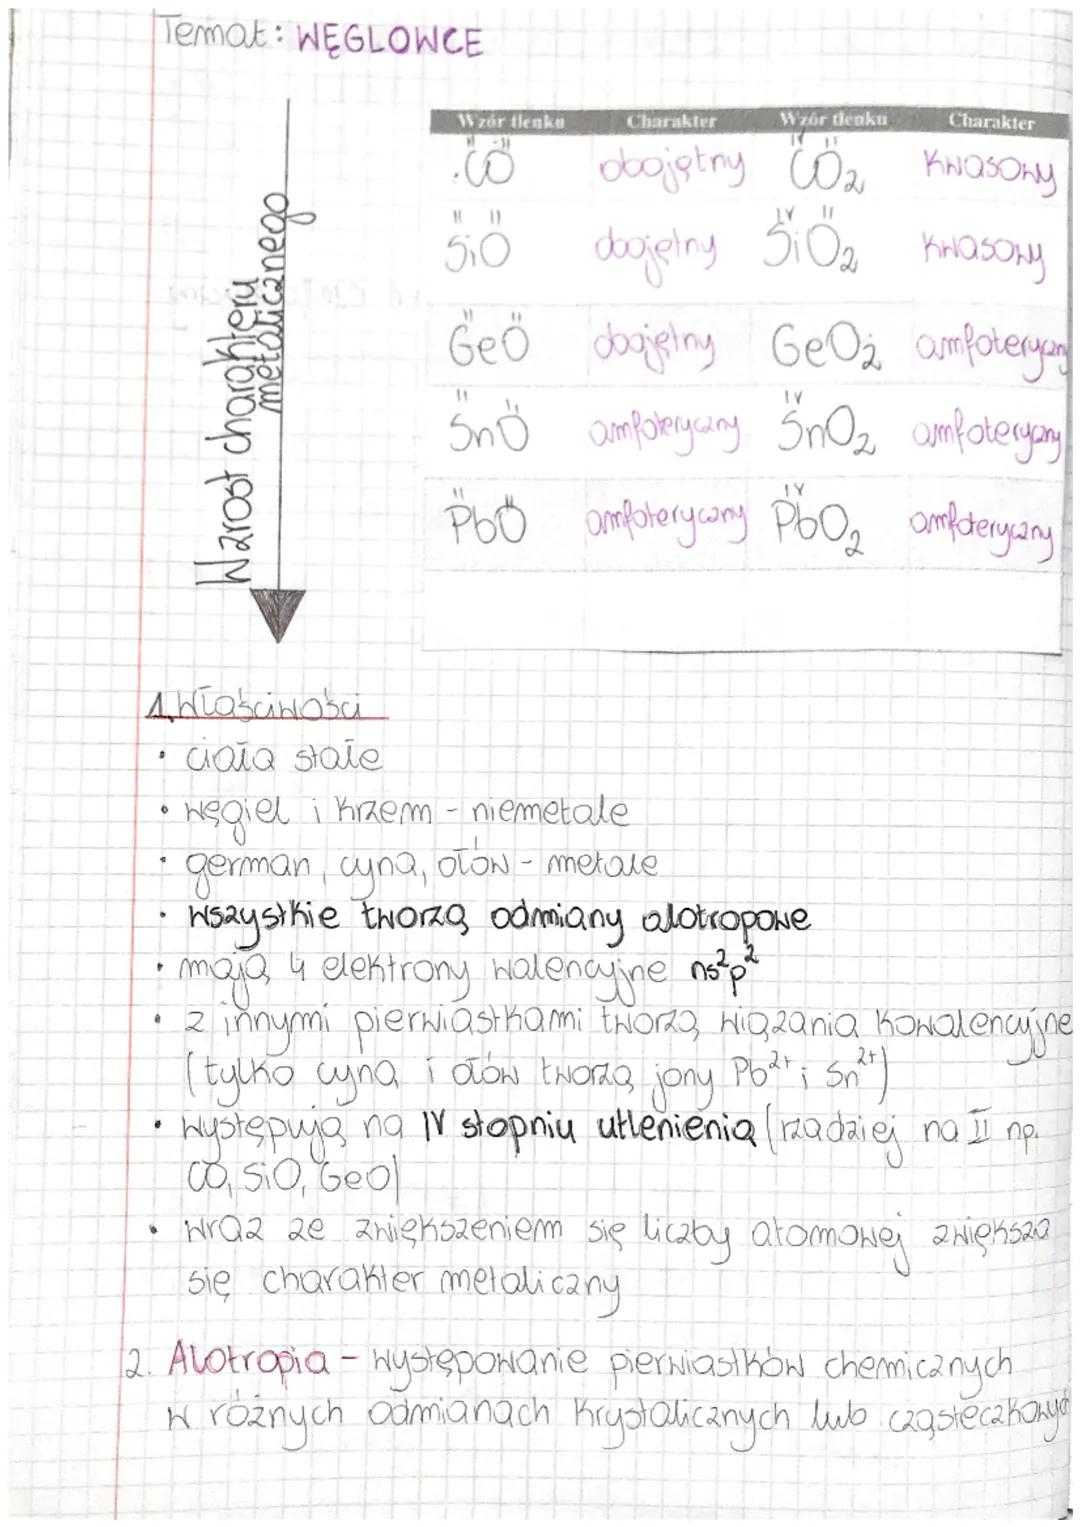 Temat: WĘGLOWCE
Wzrost charakteru
metalicznego
Wzór tlenku Charakter Wzór tlenku Charakter
II II
CO obojętny IV II
CO₂ kwasowy
II II
SiO obojętny IV II
SiO₂ kwasowy
II II
GeO obojętny GeO₂ amfoteryczny
II II
SnO amfoteryczny IV
SnO₂ amfoteryczny
II II
PbO amfoteryczny IV
PbO₂ amfoteryczny
1. Właściwości
• ciała stałe
• węgiel i krzem - niemetale
• german, cyna, ołów - metale
• wszystkie tworzą odmiany alotropowe
• mają 4 elektrony walencyjne ns²p²
• z innymi pierwiastkami tworzą wiązania kowalencyjne
(tylko cyna i ołów tworzą jony Pb²⁺ i Sn²⁺)
• występują na IV stopniu utlenienia (rzadziej na II np.
CO, SiO, GeO)
• wraz ze zwiększeniem się liczby atomowej zwiększa
się charakter metaliczny
2. Alotropia - występowanie pierwiastków chemicznych
w różnych odmianach krystalicznych lub cząsteczkowych